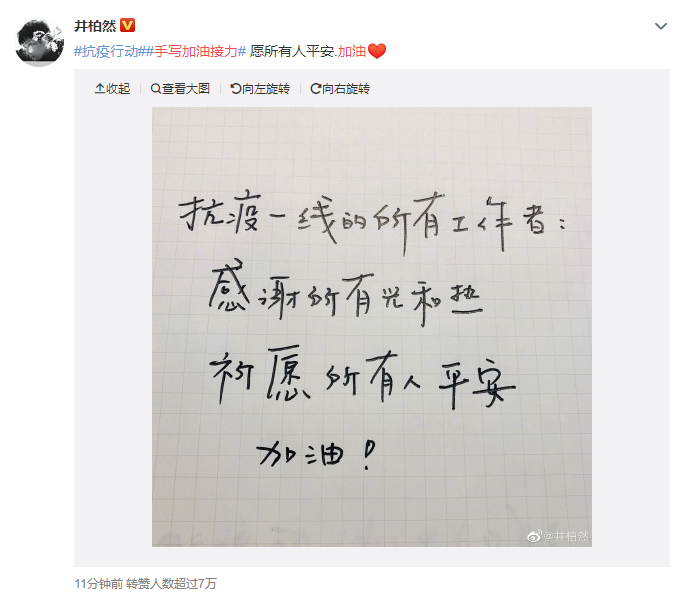 井柏然
#抗疫行动##手写加油接力# 愿所有人平安.加油❤️
收起 查看大图 向左旋转 向右旋转
抗疫一线的所有工作者：
感谢所有光和热
祈愿所有人平安
加油！
@井柏然
11分钟前 转赞人数超过7万